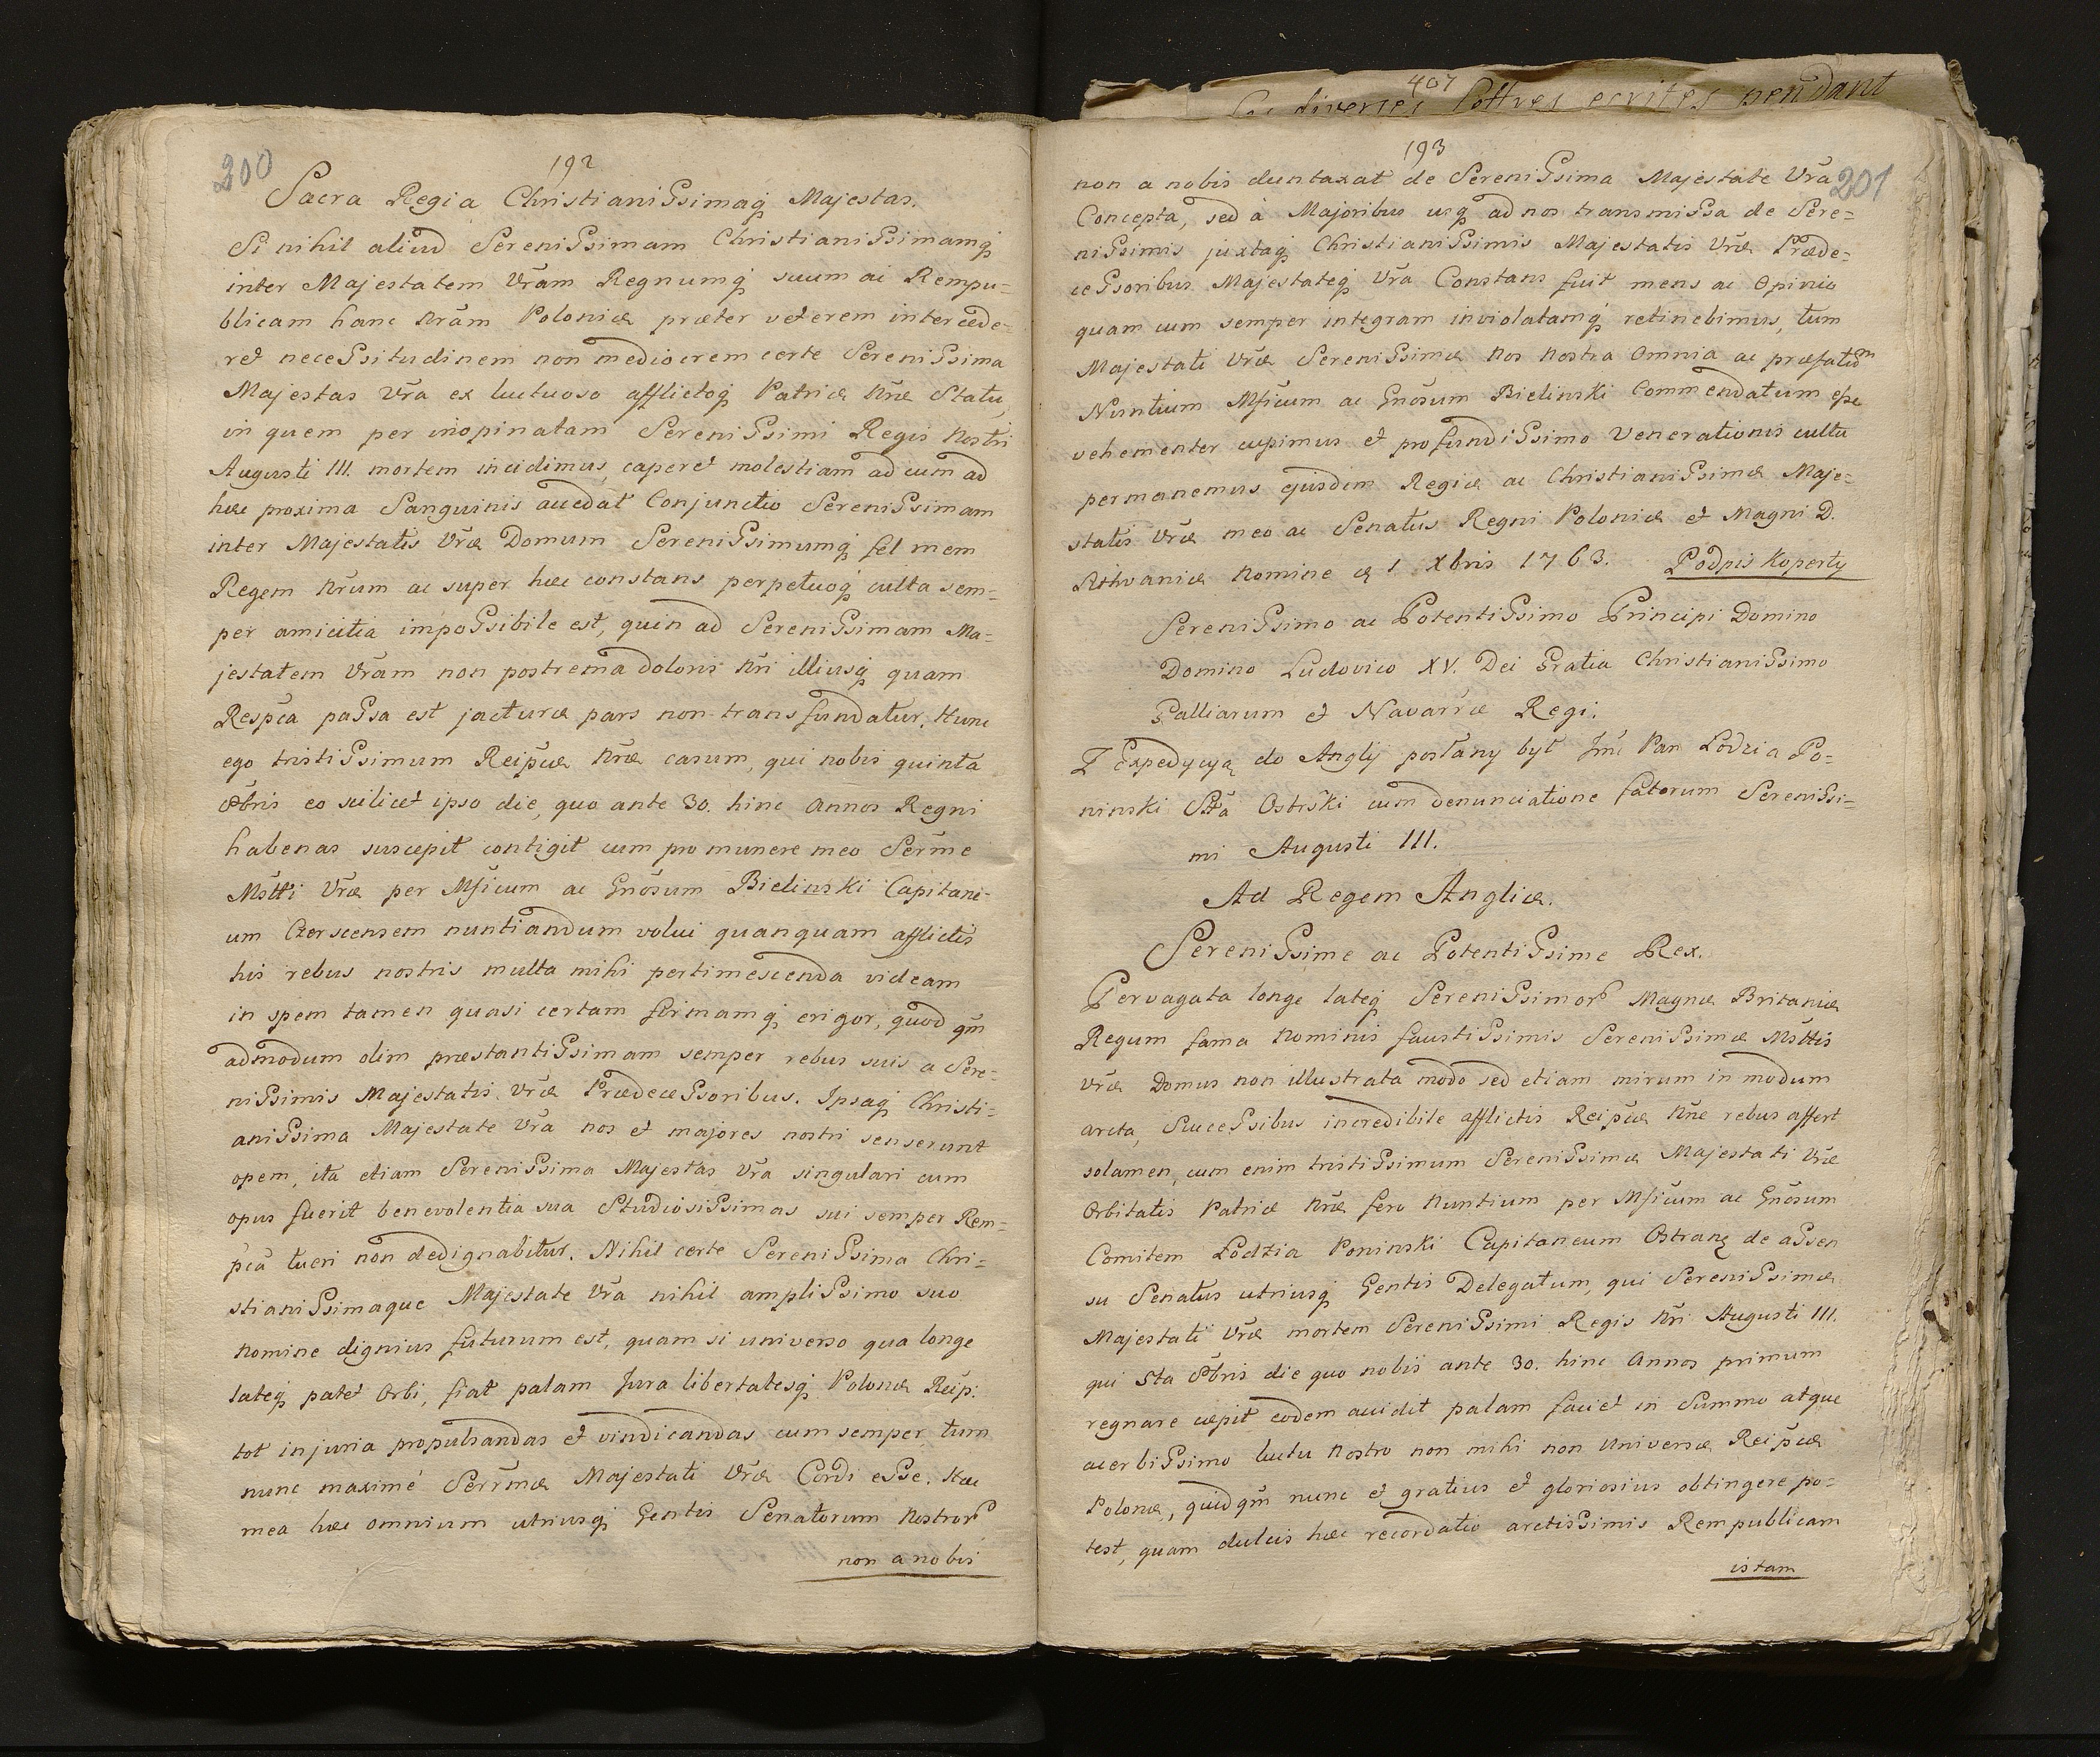 200
192
Sacra Regia Christianissimaq Majestas.
Si nihil aliud Serenissimam Christianissimamq
inter Majestatem Vram Regnumq suum ac Rempu=
blicam hanc Nram Poloniæ præter veterem intercede=
ret necessitudinem non mediocrem certe Serenissima
Majestas Vra ex luctuoso afflictoq Patriæ Nræ Statu,
in quem per inopinatam Serenissimi Regis Nostri
Augusti III. mortem incidimus, caperet molestiam ad cum ad
hæc proxima Sanguinis accedat Conjunctio Serenissimam
inter Majestatis Vræ Domum Serenissimumq fel mem
Regem Nrum ac super hæc constans perpetuoq culta sem=
per amicitia impossibile est, quin ad Serenissimam Ma=
jestatem Vram non postrema doloris Nri illiusq quam
Respca passa est jacturæ pars non transfundatur. Hunc
ego tristissimum Reipcæ Nræ casum, qui nobis quinta
8bris eo scilicet ipso die, quo ante 30. hinc Annos Regni
habenas suscepit contigit cum pro munere meo Serme
Mstti Vræ per Mficum ac Gnosum Bielinski Capitane-
um Czerscensem nuntiandum volui quanquam afflictis
his rebus nostris multa mihi pertimescenda videam
in spem tamen quasi certam firmamq erigor, quod qm
admodum olim præstantissimam semper rebus suis a Sere=
nissimis Majestatis Vræ Prædecessoribus. Ipsaq Christi=
anissima Majestate Vra nos et majores nostri senserunt
opem, ita etiam Serenissima Majestas Vra singulari cum
opus fuerit benevolentia sua Studiosissimas sui semper Rem=
pca tueri non dedignabitur. Nihil certe Serenissima Chri=
stianissimaque Majestate Vra nihil amplissimo suo
Nomine dignius futurum est, quam si universo qua longe
lateq patet Orbi, fiat palam Jura libertatesq Polonæ Reip:
tot injuria propulsandas et vindicandas cum semper tum
nunc maximé Serrmæ Majestati Vræ Cordi esse. Hæc
mea hæc omnium utriusq Gentis Senatorum Nostror
non a nobis
407
diverses lettres ecrites pendant
193
201
non a nobis duntaxat de Serenissima Majestate Vra
Concepta, sed à Majoribus usq ad nos transmissa de Sere=
nissimis juxtaq Christianissimis Majestatis Vræ Præde=
cessoribus Majestateq Vra Constans fuit mens ac Opinio
quam cum semper integram inviolatamq retinebimus, tum
Majestati Vræ Serenissimæ Nos Nostra Omnia ac præfatum
Nuntium Mficum ac Gnosum Bielinski Commendatum esse
vehementer cupimus et profundissimo Venerationis cultu
permanemus ejusdem Regiæ ac Christianissimæ Maje=
statis Vræ meo ac Senatus Regni Poloniæ et Magni D.
Lithvaniæ Nomine 1 Xbris 1763. Podpis Koperty
Serenissimo ac Potentissimo Principi Domino
Domino Ludovico XV. Dei Gratia Christianissimo
Galliarum et Navarræ Regi.
Z Expedycyą do Anglij posłany był Jmć Pan Lodzia Po=
ninski Stta Ostrski cum denunciatione fatorum Serenissi=
mi Augusti III.
Ad Regem Angliæ.
Serenissime ac Potentissime Rex.
Pervagata longe lateq Serenissimor Magnæ Britaniæ
Regum fama Nominis faustissimis Serenissimæ Msttis
Vræ Domus non illustrata modo sed etiam mirum in modum
arcta, Successibus incredibile afflictis Reipcæ Nræ rebus affert
solamen, cum enim tristissimum Serenissimæ Majestati Vræ
Orbitatis Patriæ Nræ fero Nuntium per Mficum ac Gnosum
Comitem Lodzia Poninski Capitaneum Ostran de assen
su Senatus utriusq Gentis Delegatum, qui Serenissimæ
Majestati Vræ mortem Serenissimi Regis Nri Augusti III.
qui 5ta 8bris die quo nobis ante 30. hinc Annos primum
regnare cæpit eodem accidit palam faciet in Summo atque
acerbissimo luctu Nostro non mihi non Universæ Reipcæ
Polonæ, quidqm nunc et gratius et gloriosius obtingere po=
test, quam dulcis hæc recordatio arctissimis Rempublicam
istam